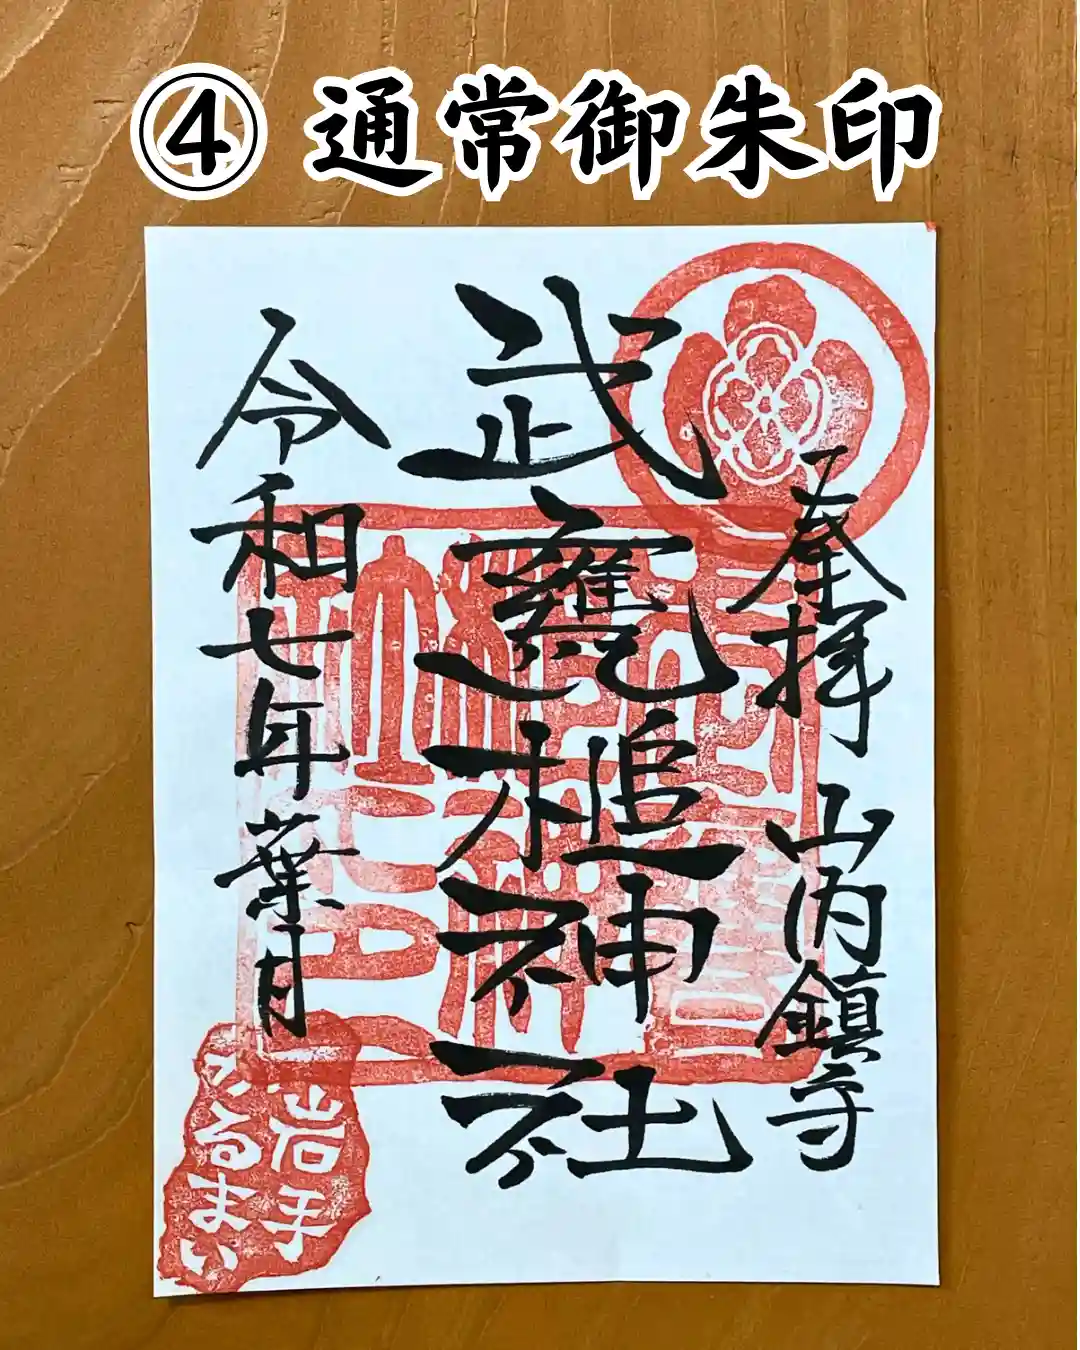 ④ 通常御朱印
奉拝 山内鎮守
武甕槌神社
令和七年葉月
岩手
かるまい